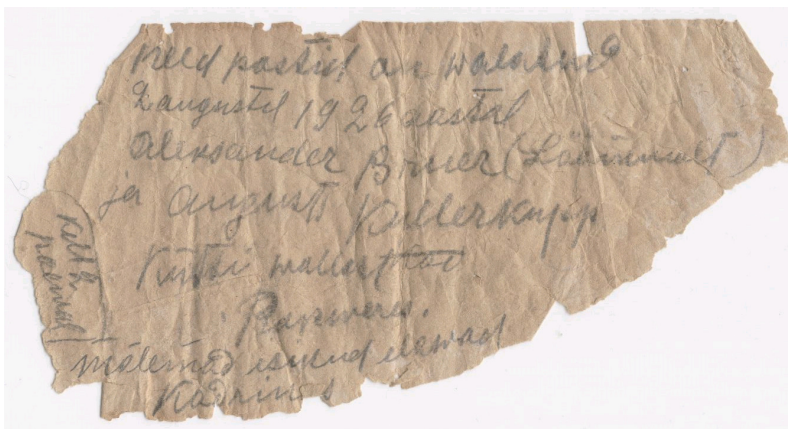 Need postid on walatud
2 augustil 1926 aastal
Aleksander Bruer (Läänemalt)
ja August Kullerkupp
Küti wallast
Rakweres.
mõlemad isikud elawad
Kadrinas